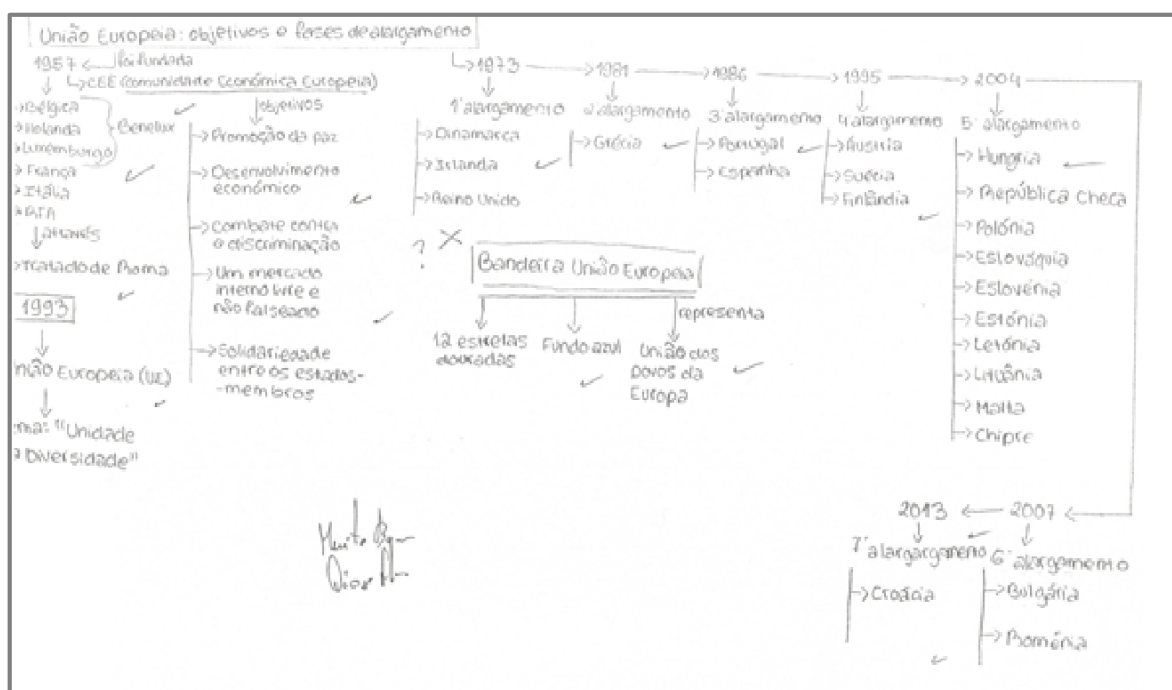 União Europeia: objetivos e fases de alargamento
1957 ← foi fundada
↳ CEE (Comunidade Económica Europeia)
→ Bélgica
→ Holanda
→ Luxemburgo
Benelux
→ França
→ Itália
→ RFA
↓ através
→ Tratado de Roma
1993
nião Europeia (UE)
ema: "Unidade
a Diversidade"
objetivos
→ Promoção da paz
→ Desenvolvimento
económico
→ Combate contra
a discriminação
→ Um mercado
interno livre e
não falseado
→ Solidariedade
entre os estados-
-membros
↳ 1973 → 1981 → 1986 → 1995 → 2004
1º alargamento
→ Dinamarca
→ Irlanda
→ Reino Unido
2º alargamento
→ Grécia
3º alargameno
→ Portugal
→ Espanha
4º alargamento
→ Áustria
→ Suécia
→ Finlândia
5º alargamento
→ Hungria
→ República Checa
→ Polónia
→ Eslováquia
→ Eslovénia
→ Estónia
→ Letónia
→ Lituânia
→ Malta
→ Chipre
?
Bandeira União Europeia
12 estrelas
douradas
Fundo azul
representa
União dos
povos da
Europa
Muito
2013 ← 2007 ←
7º alargargameno
→ Croácia
6º alargamento
→ Bulgária
→ Roménia